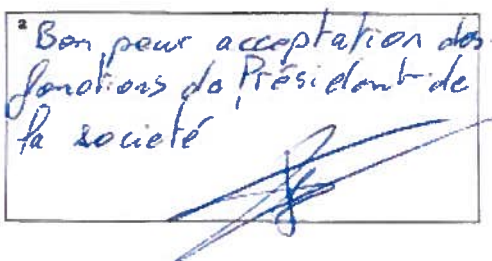 ² Bon pour acceptation des
fonctions de Président de
la société